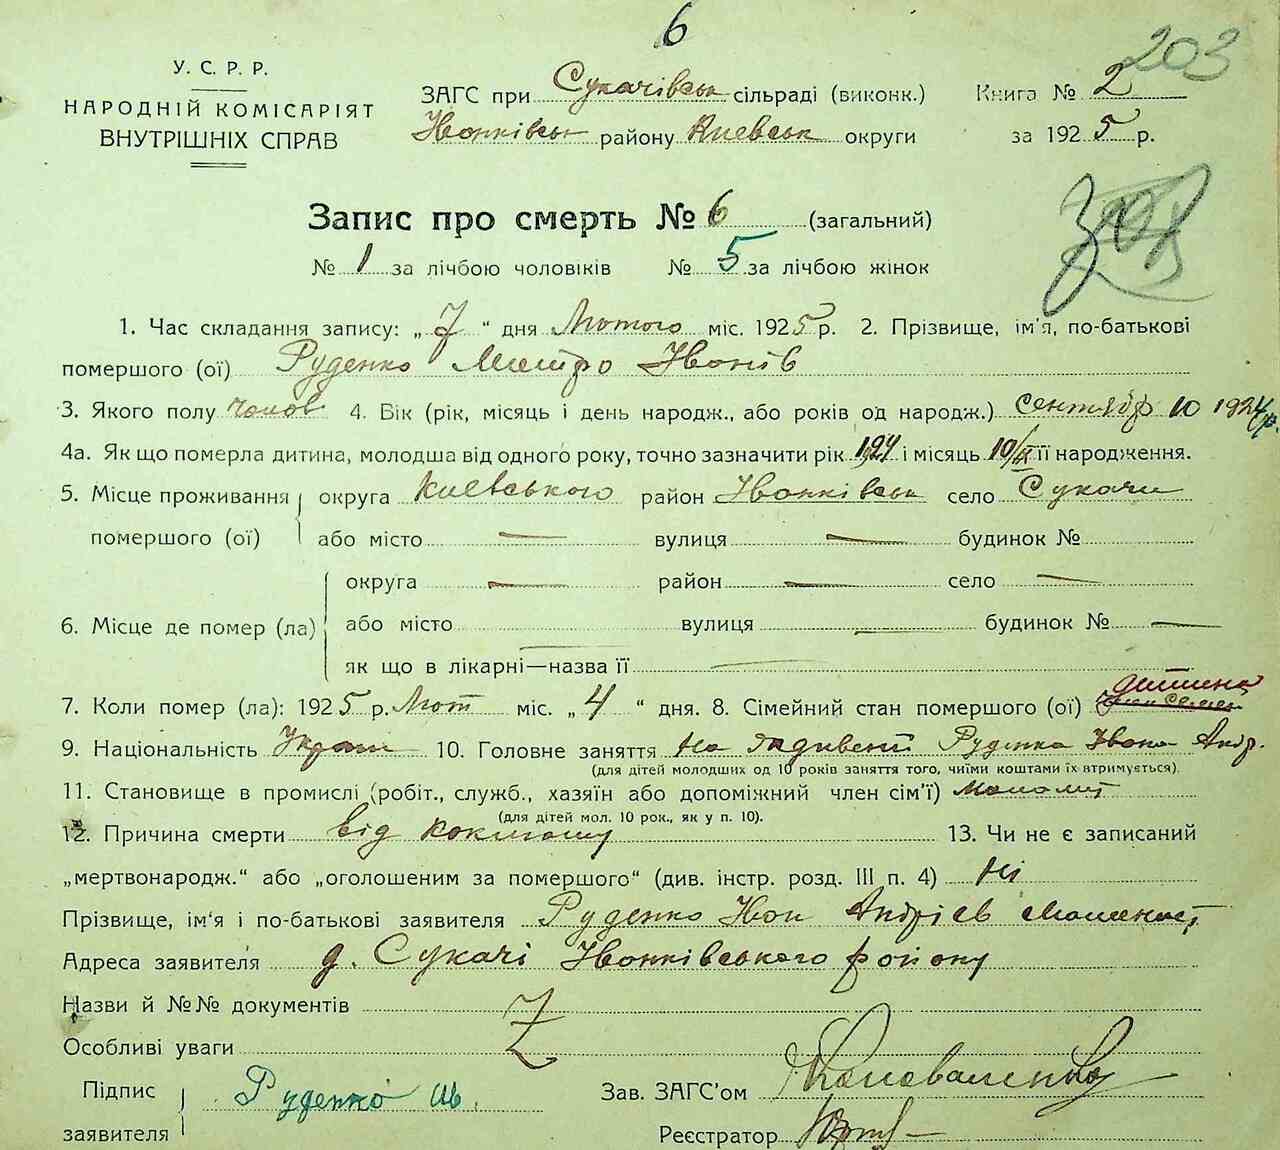 6
203
У. С. Р. Р.
НАРОДНІЙ КОМІСАРІЯТ
ВНУТРІШНІХ СПРАВ
ЗАГС при Сукачівськ сільраді (виконк.)
Іванківськ району Киевськ округи
Книга № 2
за 1925 р.
Запис про смерть № 6 (загальний)
№ 1 за лічбою чоловіків № 5 за лічбою жінок
1. Час складання запису: „ 7 “ дня Лютого міс. 1925 р. 2. Прізвище, ім'я, по-батькові
помершого (ої) Руденко Митро Іванів
3. Якого полу чолов 4. Вік (рік, місяць і день народж., або років од народж.) Сентябр 10 1924 р.
4а. Як що померла дитина, молодша від одного року, точно зазначити рік 1924 і місяць 10/IX її народження.
5. Місце проживання помершого (ої) округа Киевського район Іванківськ село Сукачи
або місто — вулиця — будинок №
6. Місце де помер (ла) округа — район — село —
або місто вулиця — будинок № —
як що в лікарні—назва її —
7. Коли помер (ла): 1925 р. Лют міс. „ 4 “ дня. 8. Сімейний стан помершого (ої) дитина
9. Національність Украин 10. Головне заняття На Руденка Івана Андр.
(для дітей молодших од 10 років заняття того, чиїми коштами їх втримується).
11. Становище в промислі (робіт., служб., хазяїн або допоміжний член сім'ї)
(для дітей мол. 10 рок., як у п. 10).
12. Причина смерти від коклюшу 13. Чи не є записаний
„мертвонародж.“ або „оголошеним за помершого“ (див. інстр. розд. III п. 4) Ні
Прізвище, ім'я і по-батькові заявителя Руденко Іван Андріев
Адреса заявителя д. Сукачі Іванківського району
Назви й №№ документів
Особливі уваги Z
Підпис заявителя Руденко Ів.
Зав. ЗАГС'ом Коноваленко
Реєстратор